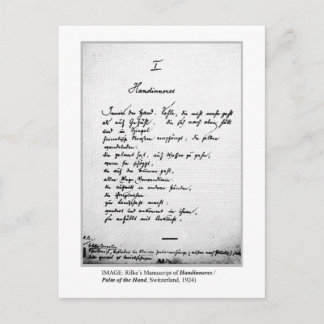 I
Handinneres
Innres der Hand. Sohle, die nicht mehr geht
als auf Gefühl. die sich nach oben hält
und im Spiegel
himmlische Strassen empfängt, die selber
wandelnden.
die gelernt hat, auf Wasser zu gehn,
wenn sie schöpft,
die auf den Brunnen geht,
aller Wege Verwandlerin.
die auftritt in anderen Händen,
die ihresgleichen
zur Landschaft macht:
wandert und ankommt in ihnen,
sie anfüllt mit Ankunft.
IMAGE: Rilke's Manuscript of Handinneres /
Palm of the Hand, Switzerland, 1924)